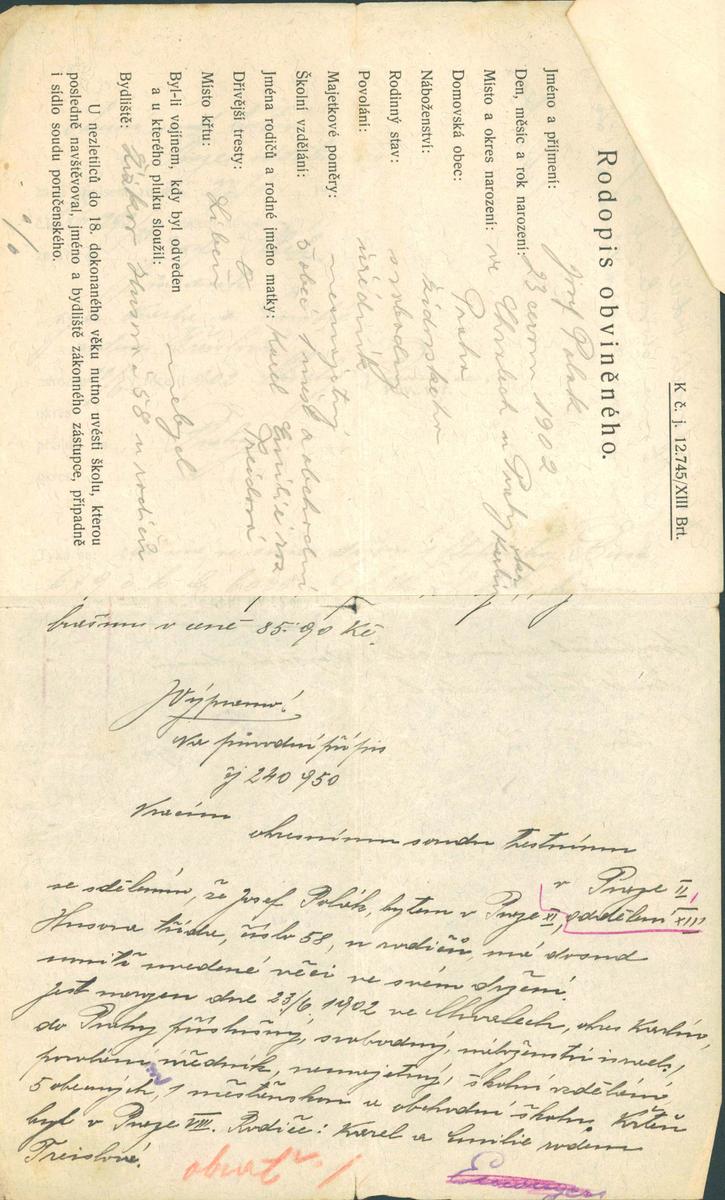 K č. j. 12.745/XIII Brt.
Rodopis obviněného.
Jméno a příjmení: Josef Polák
Den, měsíc a rok narození: 23 června 1902
Místo a okres narození: ve Chvalech u Prahy okr Karlín
Domovská obec: Praha
Náboženství: židovského
Rodinný stav: svobodný
Povolání: úředník
Majetkové poměry: nemajetný
Školní vzdělání: 5 obec 1 měšť a obchodní
Jména rodičů a rodné jméno matky: Karel Emilie roz
Treislová
Dřívější tresty: 0
Místo křtu: Libeň
Byl-li vojínem, kdy byl odveden
a u kterého pluku sloužil: nebyl
Bydliště: Žižkov Husova 58 u rodičů
U nezletilců do 18. dokonaného věku nutno uvésti školu, kterou
posledně navštěvoval, jméno a bydliště zákonného zástupce, případně
i sídlo soudu poručenského.
·/.
v ceně 85·90 Kč.
Výprava:
Na původní přípis
čj 240950
Vracím
okresnímu soudu trestnímu
v Praze II
oddělení XIII
se sdělením, že Josef Polák, bytem v Praze XI,
Husova třída, číslo 58, u rodičů, má dosud
uvnitř uvedené věci ve svém držení.
Jest narozen dne 23/6. 1902 ve Chvalech, okres Karlín,
do Prahy příslušný, svobodný, náboženství israel.,
povoláním úředník, nemajetný, školní vzdělání
5 obecných, 1 měšťanskou a obchodní školu. Křtěn
byl v Praze VIII. Rodiče: Karel a Emilie rodem
Treislová.